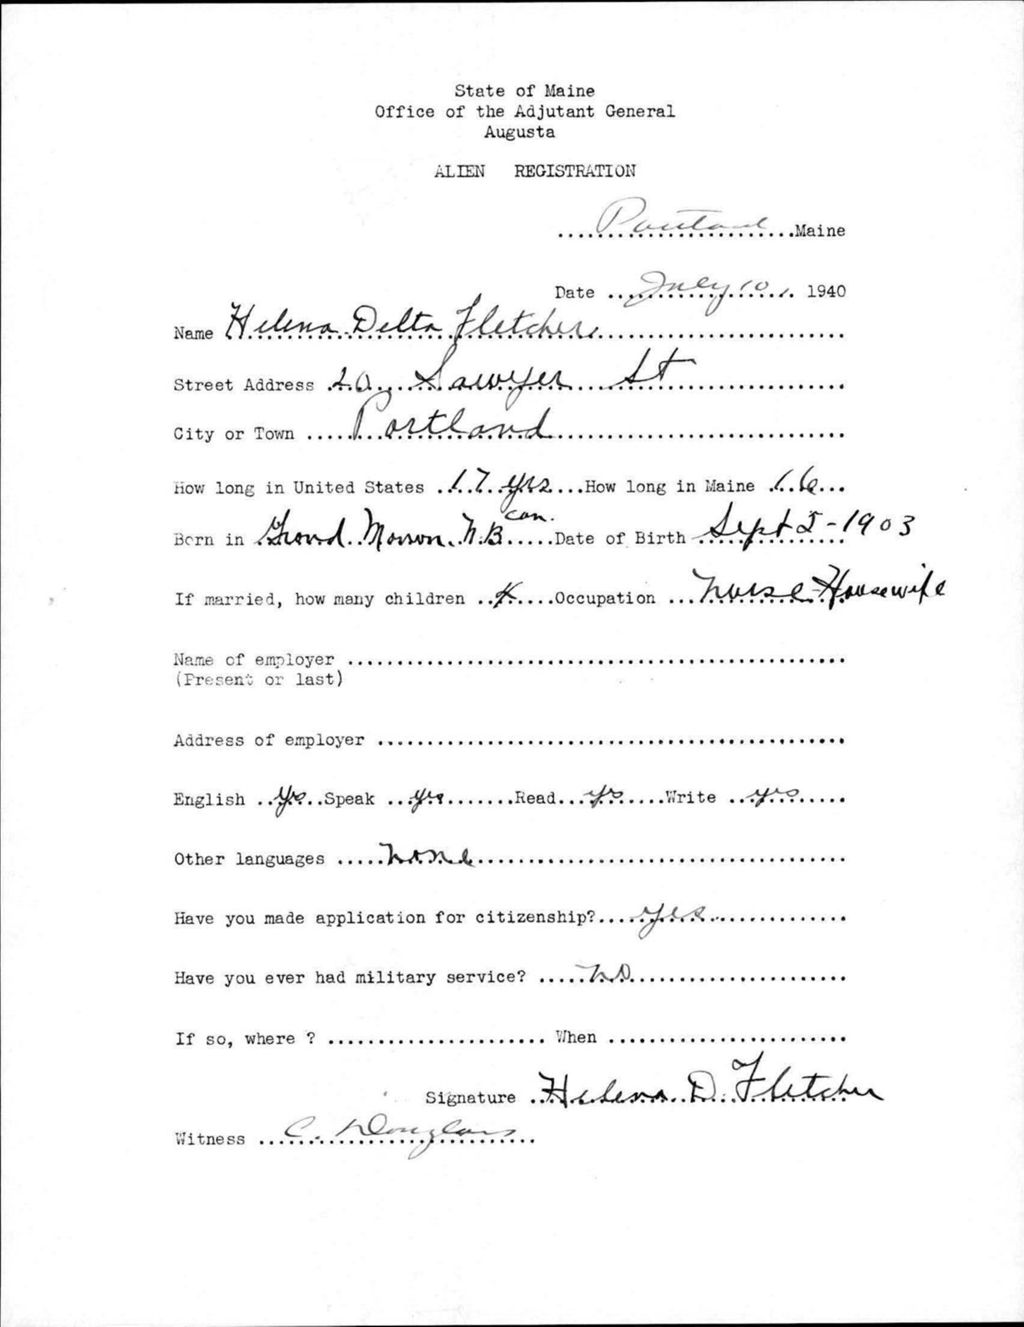 State of Maine
Office of the Adjutant General
Augusta
ALIEN REGISTRATION
Portland Maine
Date July 10, 1940
Name Helena Delta Fletcher
Street Address Sawyer St
City or Town Portland
How long in United States 17 yrs How long in Maine 16
Born in Grand Manan N.B can. Date of Birth Sept 5-1903
If married, how many children Occupation nurse-Housewife
Name of employer
(Present or last)
Address of employer
English yes Speak yes Read yes Write yes
Other languages none
Have you made application for citizenship? yes
Have you ever had military service? no
If so, where ? When
Signature Helena D. Fletcher
Witness C. Douglass